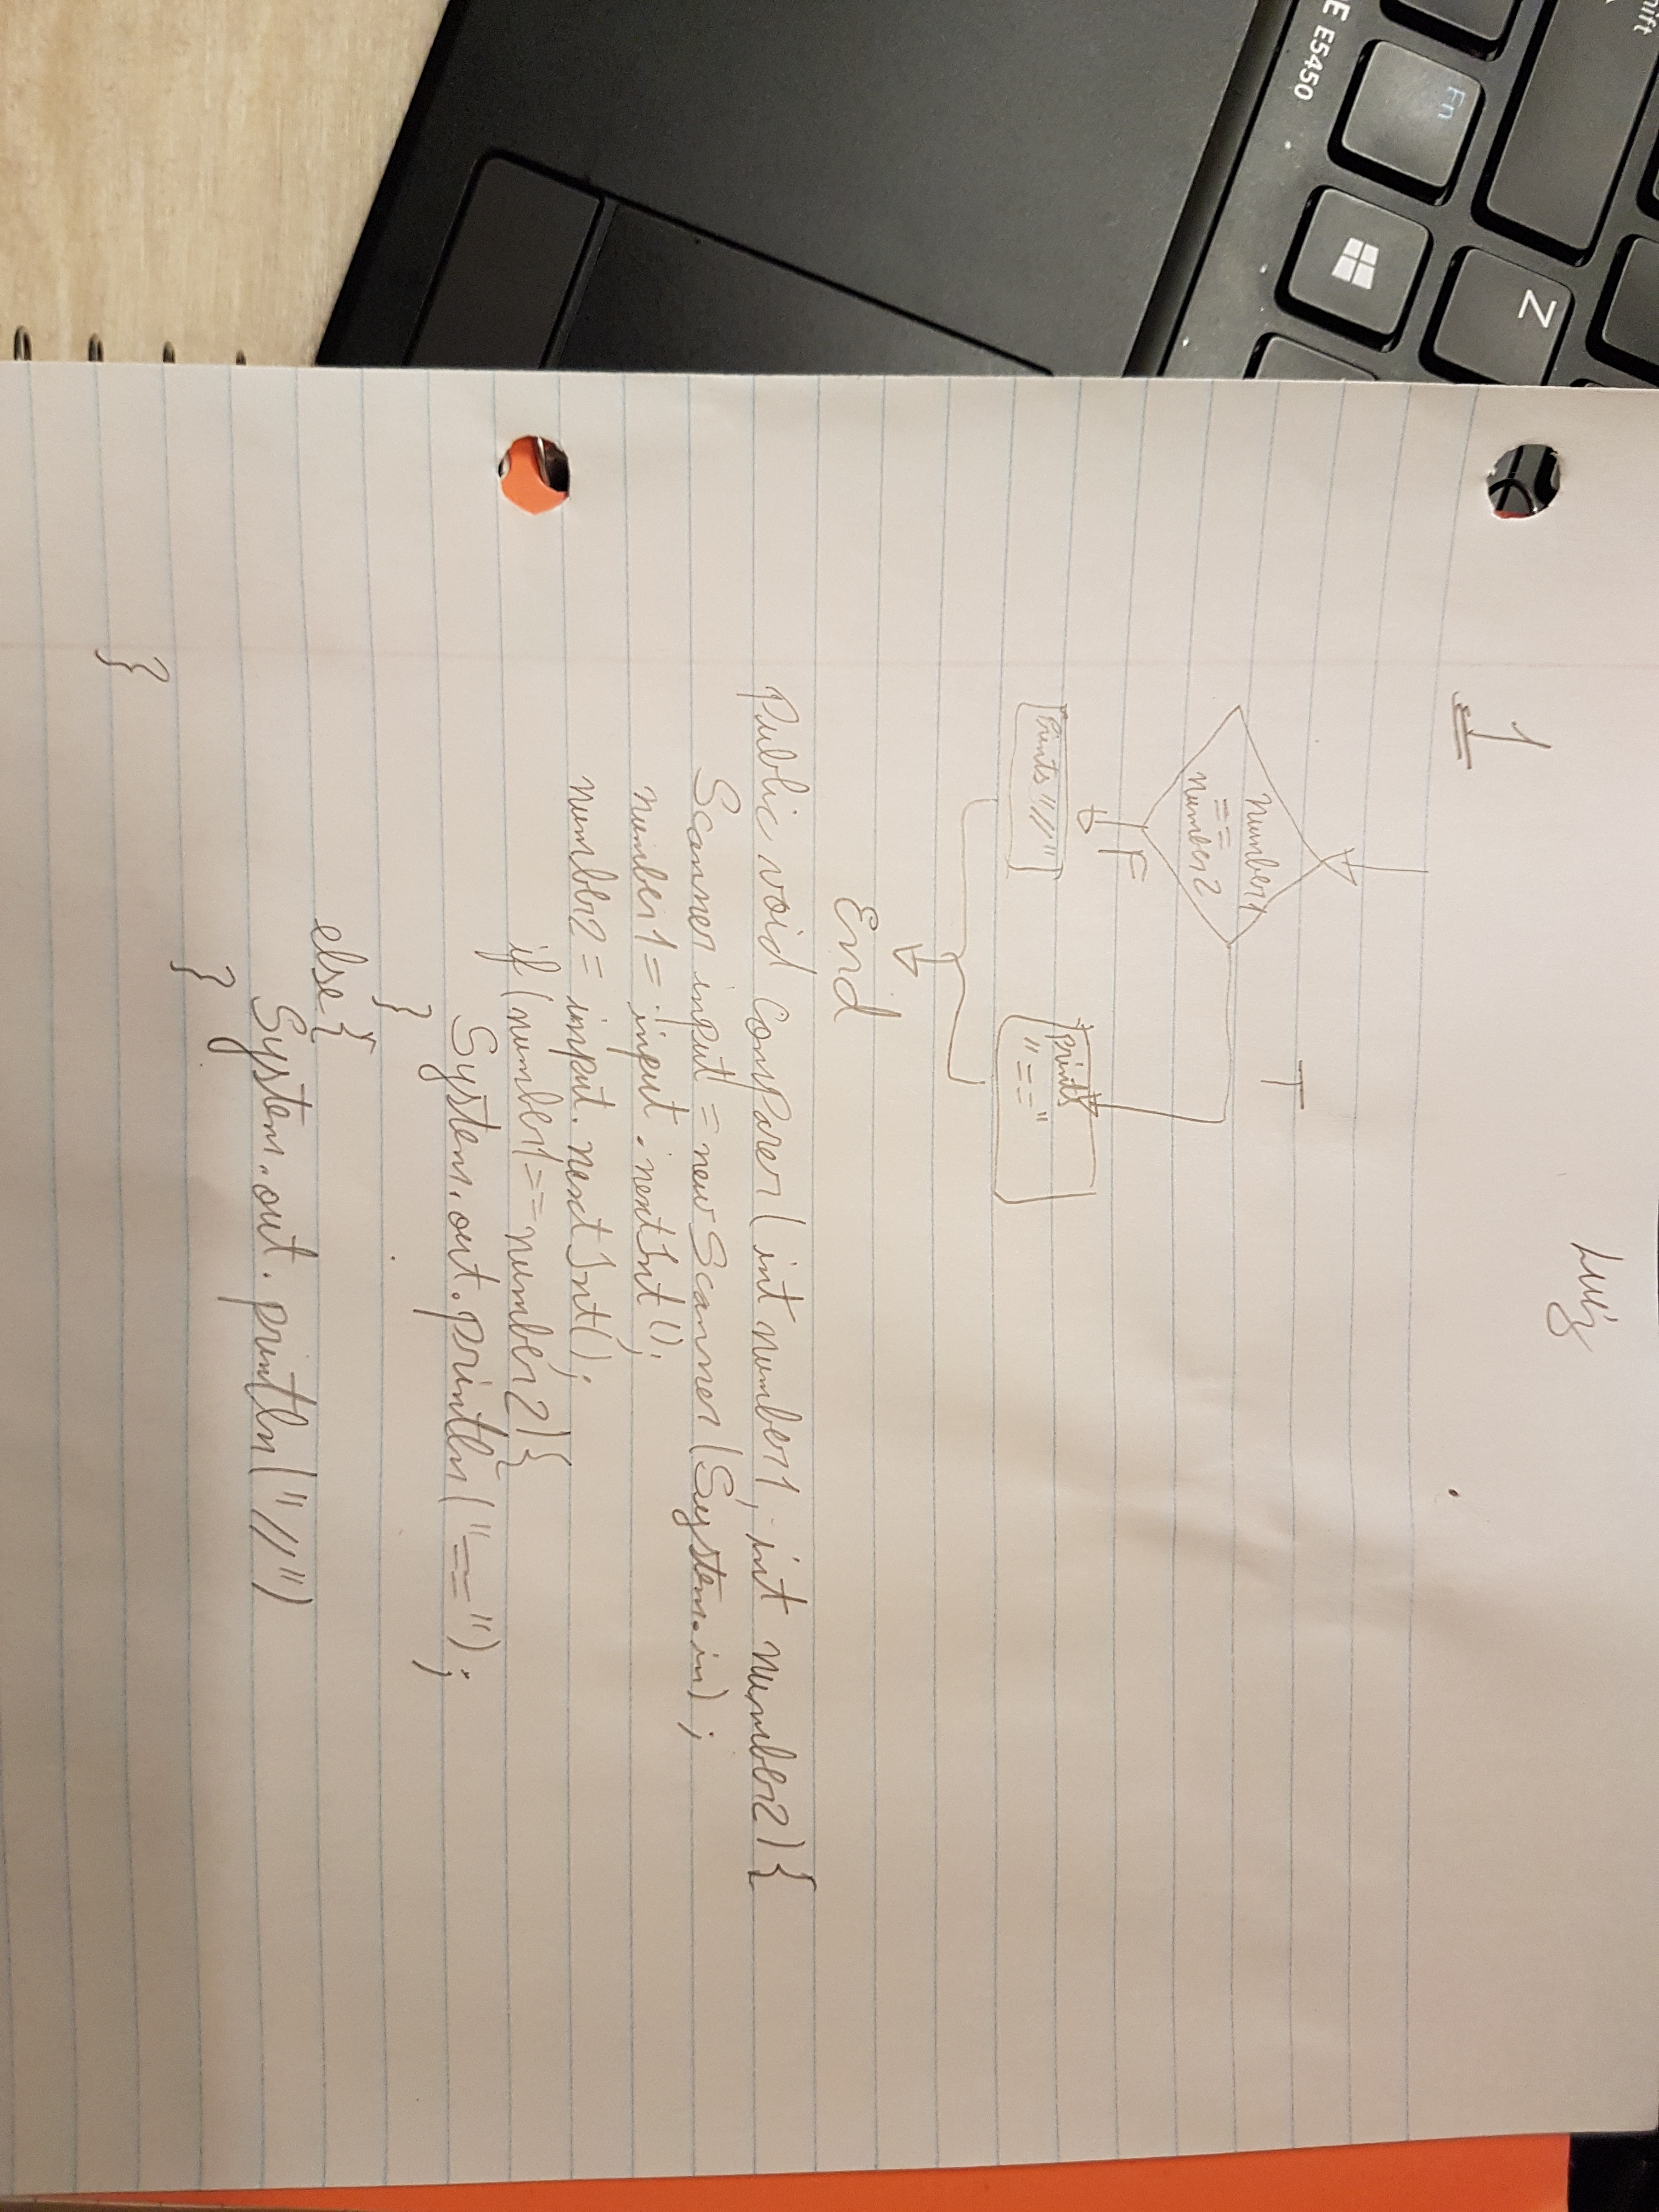 Luiz
1
number1
==
number2
T
F
Prints "//"
prints
"=="
End
Public void Comparer(int number1, int number2){
Scanner input = new Scanner(System.in);
number1 = input.nextInt();
number2 = input.nextInt();
if(number1==number2){
System.out.println("==");
}
else{
System.out.println("//")
}
}
E E5450
Fn
Shift
Z